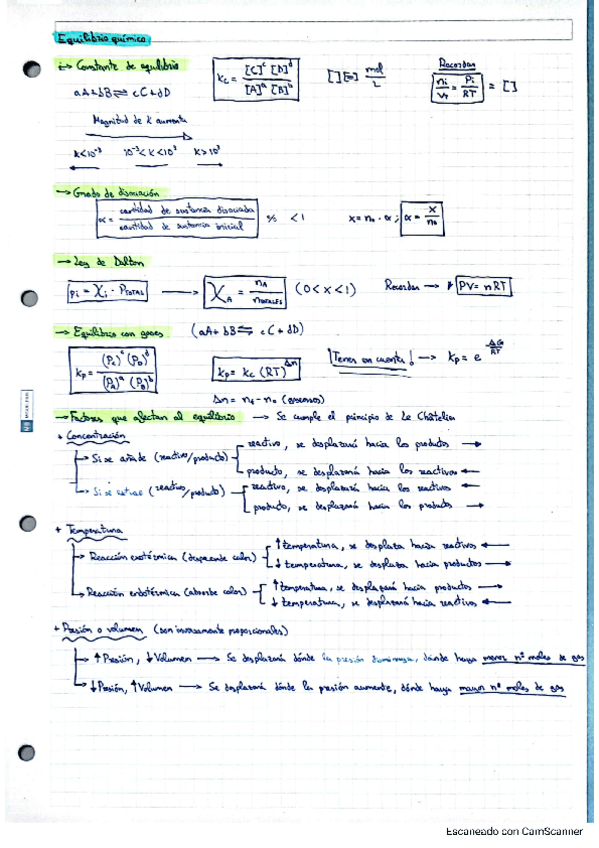 Equilibrio químico
→ Constante de equilibrio
aA+bB ⇌ cC+dD
Kc = [C]^c [D]^d / [A]^a [B]^b
[ ] [=] mol / L
Recordar
ni / VT = Pi / RT = [ ]
Magnitud de K aumenta
K<10^-3   10^-3<K<10^3   K>10^3
→ Grado de disociación
α = cantidad de sustancia disociada / cantidad de sustancia inicial   <1   x = n0 · α ; α = x / n0
→ Ley de Dalton
Pi = Xi · PTOTAL → XA = nA / nTOTALES (0<X<1) Recordar → PV = nRT
→ Equilibrio con gases (aA+bB ⇌ cC+dD)
Kp = (Pc)^c (PD)^d / (PA)^a (PB)^b   Kp = Kc (RT)^Δn   ¡Tener en cuenta! → Kp = e^-ΔG/RT
Δn = nf - no (gaseosos)
→ Factores que afectan al equilibrio → Se cumple el principio de Le Châtelier
+ Concentración
→ Si se añade (reactivo/producto)
reactivo, se desplazará hacia los productos →
producto, se desplazará hacia los reactivos ←
→ Si se extrae (reactivo/producto)
reactivo, se desplazará hacia los reactivos ←
producto, se desplazará hacia los productos →
+ Temperatura
→ Reacción exotérmica (desprende calor)
↑ temperatura, se desplaza hacia reactivos ←
↓ temperatura, se desplaza hacia productos →
→ Reacción endotérmica (absorbe calor)
↑ temperatura, se desplazará hacia productos →
↓ temperatura, se desplazará hacia reactivos ←
+ Presión o volumen (son inversamente proporcionales)
→ ↑ Presión, ↓ Volumen → Se desplazará dónde la presión disminuya, dónde haya menor nº moles de gas
→ ↓ Presión, ↑ Volumen → Se desplazará dónde la presión aumente, dónde haya mayor nº moles de gas
Escaneado con CamScanner